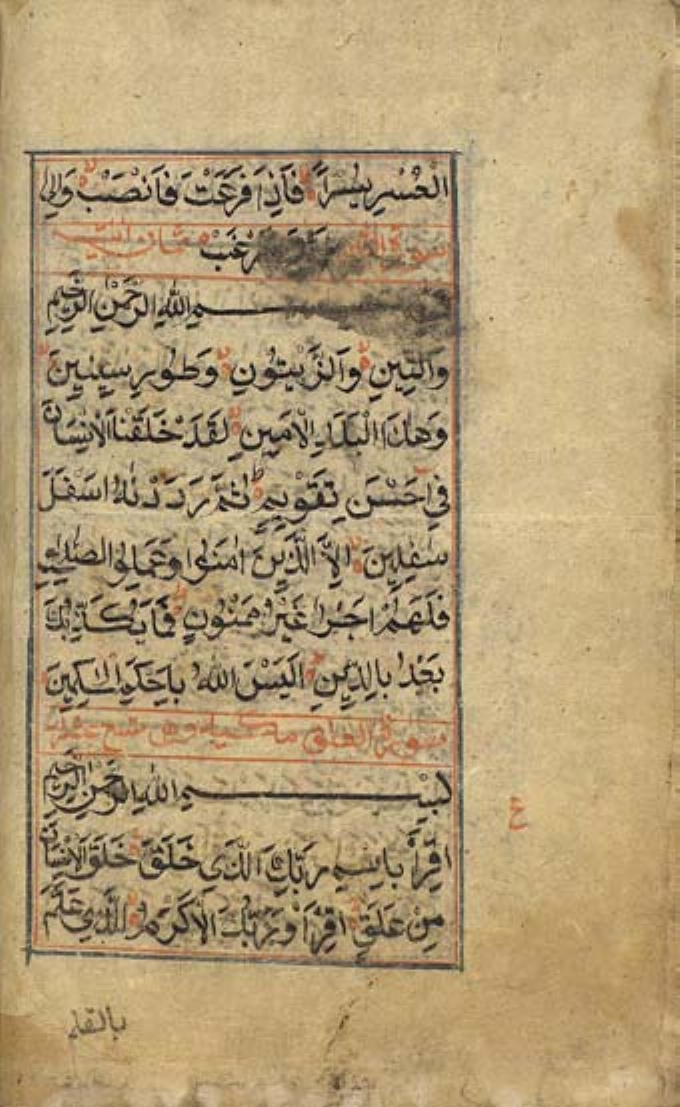 الْعُسْرِ يُسْراً فَاَذِاَ فَرَغَتْ فَانْصَبْ وَالِى
سورة فَرْغَبْ ثمان ايات
بسم اللهِ الرَّحْمٰنِ الرَّحِيمِ
وَالتِّينِ وَالزَّيْتُونِ وَطُورِ سِينِينَ
وَهٰذَا الْبَلَدِ الْاَمِينِ لَقَدْ خَلَقْنَا الْاِنْسَانَ
فِى اَحْسَنِ تَقْوِيمٍ ثُمَّ رَدَدْنٰهُ اَسْفَلَ
سٰفِلِينَ اِلاَّ الَّذِينَ اٰمَنُوا وَعَمِلُوا الصّٰلِحٰتِ
فَلَهُمْ اَجْرٌ غَيْرُ مَمْنُونٍ فَمَا يُكَذِّبُكَ
بَعْدُ بِالدِّينِ اَلَيْسَ اللهُ بِاَحْكَمِ الْحٰكِمِينَ
سورة العلق مكية وهى تسع عشر
بِسْمِ اللهِ الرَّحْمٰنِ الرَّحِيمِ
اقْرَأْ بِاسْمِ رَبِّكَ الَّذِى خَلَقَ خَلَقَ الْاِنْسَانَ
مِنْ عَلَقٍ اقْرَأْ وَرَبُّكَ الْاَكْرَمُ الَّذِى عَلَّمَ
ع
بالقلم